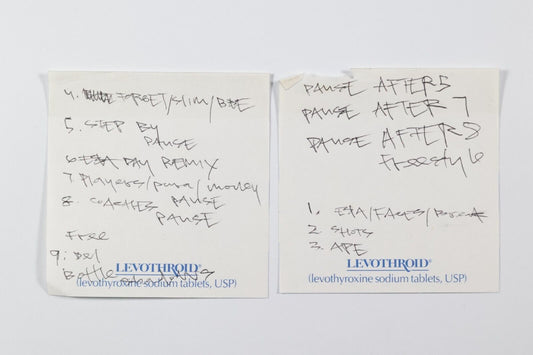 4. FORGET/SLIM/BEE
5. STEP BY
PAUSE
6 DAY REMIX
7. Players/para/money
8. COACHES PAUSE
PAUSE
Free
9. Del
Bottle
LEVOTHROID®
(levothyroxine sodium tablets, USP)
PAUSE AFTER 5
PAUSE AFTER 7
PAUSE AFTER 8
Freestyle
1. /FACES/
2. SHOTS
3. APE
LEVOTHROID®
(levothyroxine sodium tablets, USP)